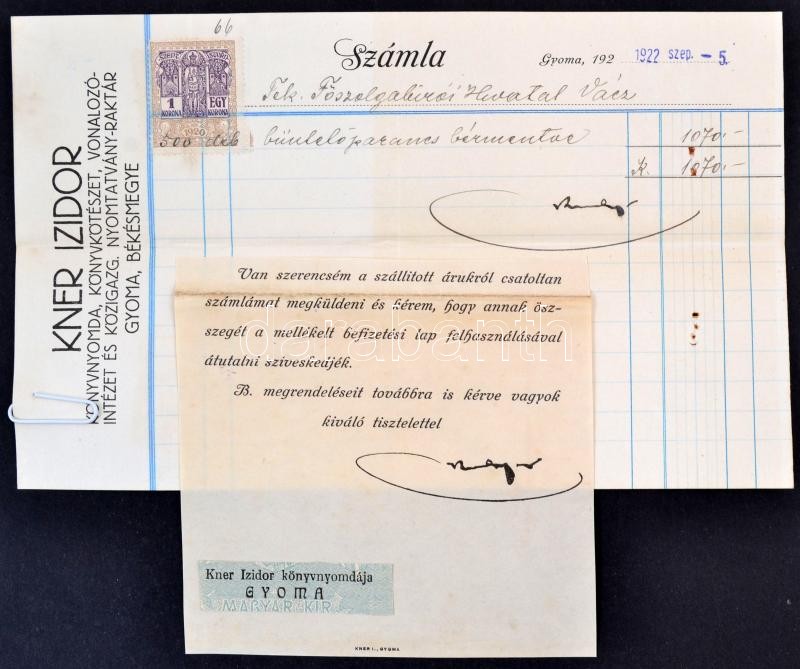 66
KNER IZIDOR
KÖNYVNYOMDA, KÖNYVKÖTÉSZET, VONALOZÓ-
INTÉZET ÉS KÖZIGAZG. NYOMTATVÁNY-RAKTÁR
GYOMA, BÉKÉSMEGYE
1 EGY
KORONA KORONA
1920
Számla
Gyoma, 192
1922 szep. - 5.
Tek. Főszolgabírói Hivatal Vácz
500 db büntetőparancs bérmentve 1070.-
K. 1070.-
Van szerencsém a szállitott árukról csatoltan
számlámat megküldeni és kérem, hogy annak ösz-
szegét a mellékelt befizetési lap felhasználásával
átutalni sziveskedjék.
B. megrendeléseit továbbra is kérve vagyok
kiváló tisztelettel
Kner Izidor könyvnyomdája
GYOMA
MAGYAR KIR
KNER I., GYOMA
darabanth